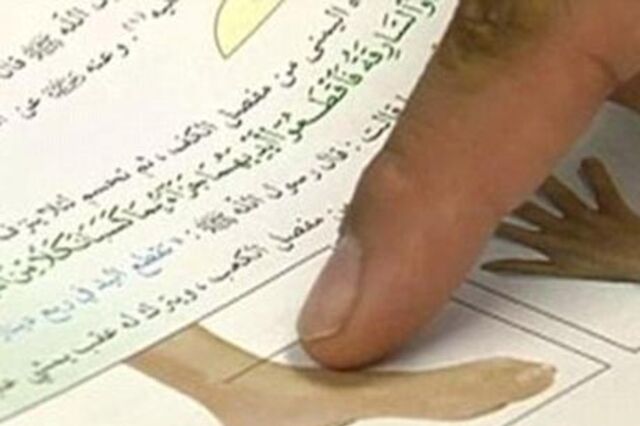 ل الله ﷺ قال
(١). وعنه ﷺ
اليمنى من مفصل الكف، ثم تحسم
وَالسَّارِقَةُ فَاقْطَعُوا أَيْدِيَهُمَا جَزَاءً بِمَا كَسَبَا نَكَالًا مِنَ
قالت: قال رسول الله ﷺ: «تقطع اليد في ربع دينار
من مفصل الكعب، ويترك له عقب يمشي